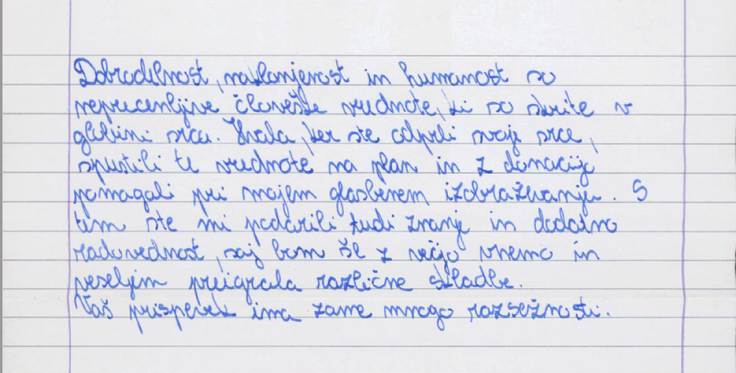 Dobrodelnost, naklonjenost in humanost so
neprecenljive človeške vrednote, ki so skrite v
globini srca. Hvala, ker ste odprli svoje srce,
spustili te vrednote na plan in z donacijo
pomagali pri mojem glasbenem izobraževanju. S
tem ste mi podarili tudi znanje in dodatno
radovednost, saj bom še z večjo vnemo in
veseljem preigrala različne skladbe.
Vaš prispevek ima zame mnogo razsežnosti.